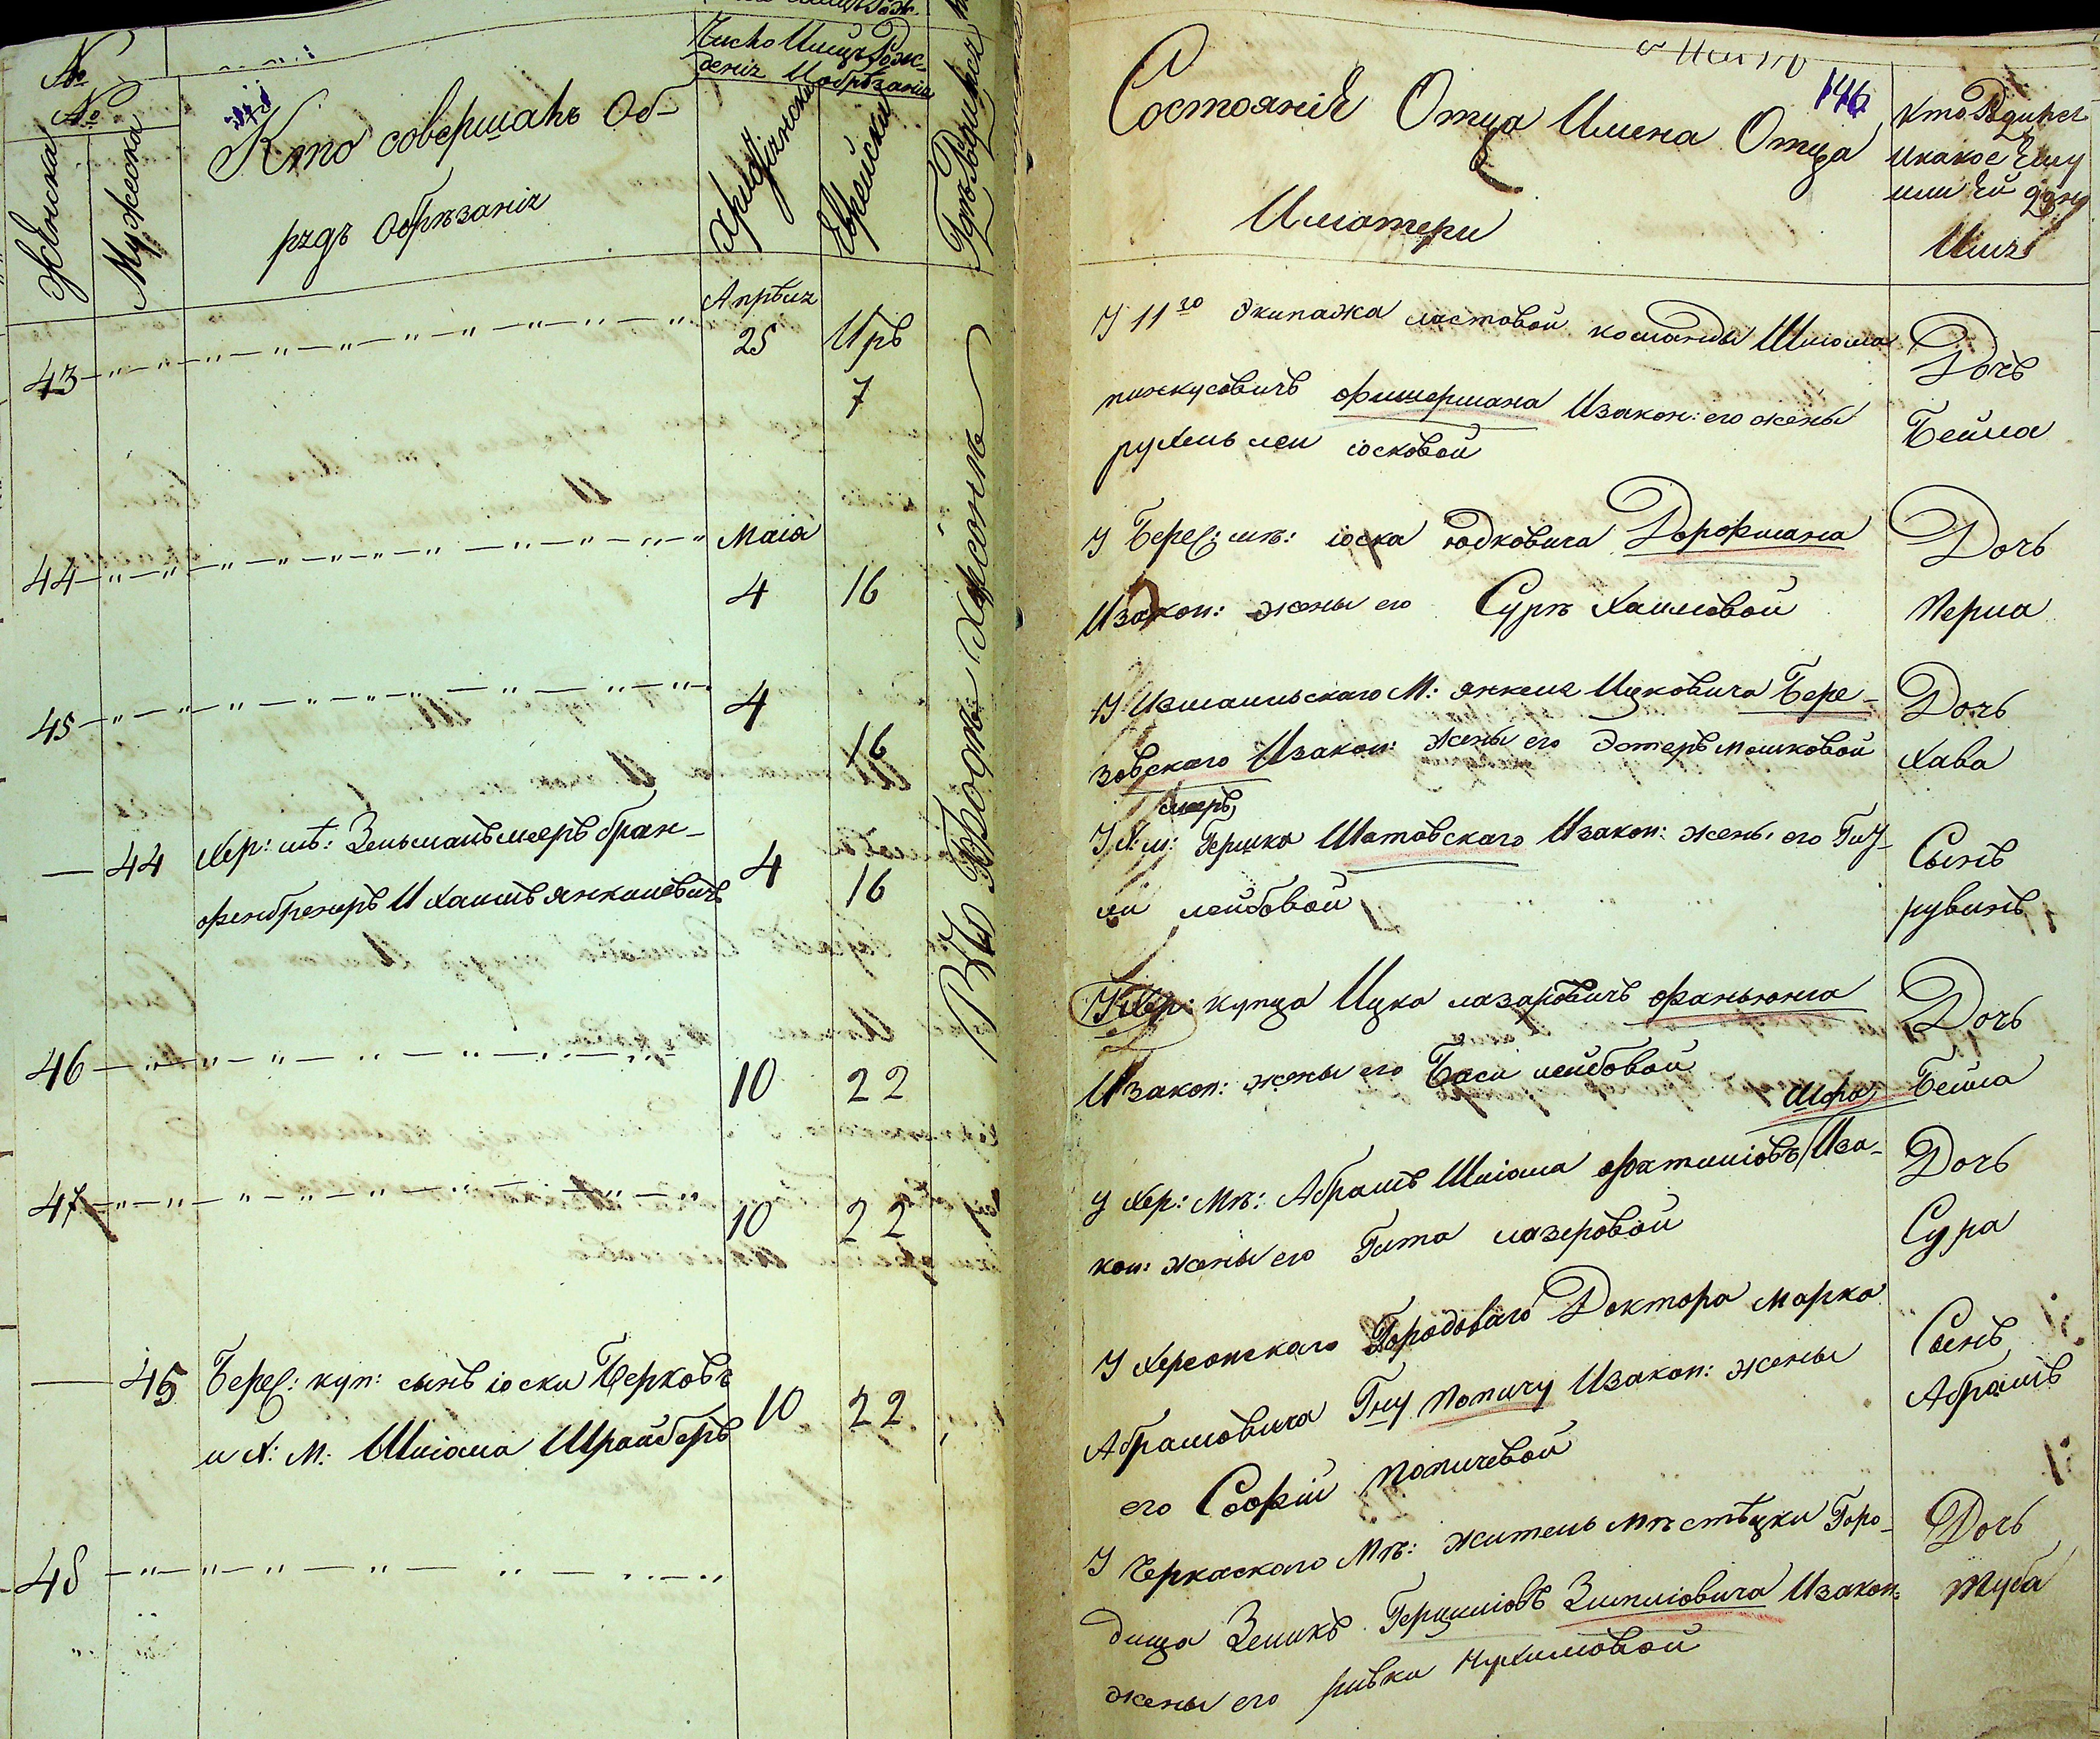 №
№
Женска
Мужеска
Кто совершалъ Об-
рядъ Обрѣзанія
Число И Мѣсяцъ Рож-
денія И обрѣзанія
Христіянски
Еврейски
Гдѣ Родился
146
Состояніе Отца Имена Отца
И матери
Кто Родился
и какое Ему
или Ей дано
Имя
Апрѣля
43 25 Иръ
7
У 11го экипажа ластовой команды Шлиома
пинкусовичъ фишермана И закон: его жены
рухль леи іосковой
Дочь
Бейла
Маія
44 4 16
У Берес: мѣ: іоска юдковича Дорофмана
И закон: жены его Суръ Хаимовой
Дочь
перла
45 4 16
У Измаильскаго М: янкеля Ицковича Бере-
зовскаго И закон: жены его Эстеръ мошковой
Дочь
Хава
— 44 Хер: мѣ: Зельманъ мееръ бран-
фенбренеръ И хаимъ янкилевичъ
4 16
мееръ
У Х: м: Гершка Шатовскаго И закон: жены его Гиу-
ли лейбовой
Сынъ
рувинъ
46 10 22
У Хер: купца Ицка лазаровичъ фаньюнга
И закон: жены его Баси лейбовой
Дочь
Бейла
47 10 22
У Хер: Мѣ: Абрамъ Шліома фатиліовъ Шфа И за-
кон: жены его Гита лазеровой
Дочь
Сура
— 45 Берес: куп: сынъ іоски Берковъ
и Х: М: Шліома Шрайберъ
10 22
У Херсонскаго Городоваго Доктора марка
Абрамовича Гну попичу И закон: жены
его Софіи попичевой
Сынъ
Абрамъ
48
У Черкаскаго Мѣ: житель мѣстѣчки Горо-
дища Зеликъ Гершліовъ Зильпіовича И закон:
жены его ривки нухимовой
Дочь
туба
Въ Городѣ Херсонѣ